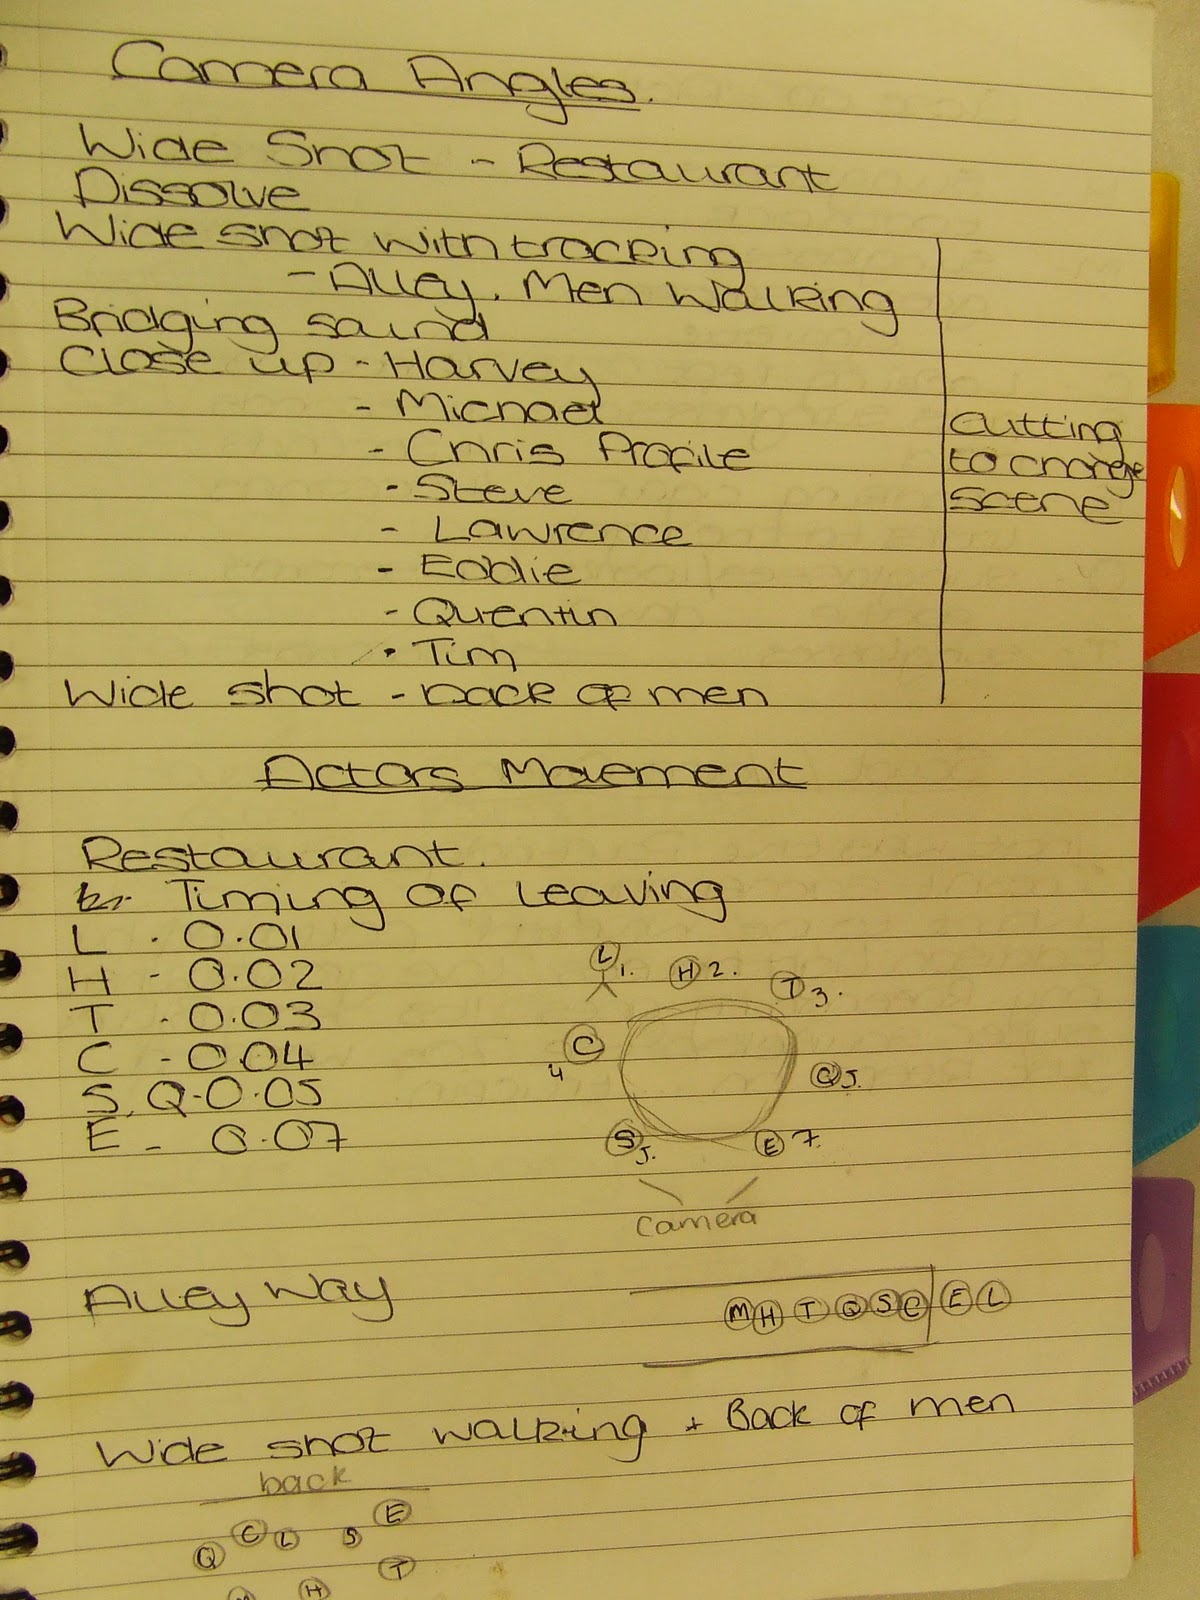 Camera Angles.
Wide Shot - Restaurant
Dissolve
Wide shot with tracking
- Alley. Men Walking
Bridging sound
Close up - Harvey
- Michael
- Chris Profile
- Steve
- Lawrence
- Eddie
- Quentin
- Tim
Wide shot - back of men
cutting
to change
scene
Actors Movement
Restaurant.
Timing of Leaving
L - 0.01
H - 0.02
T - 0.03
C - 0.04
S, Q - 0.05
E - 0.07
L 1. H 2. T 3.
C 4
Q 5.
S 5. E 7.
Camera
Alley Way
M H T Q S C E L
Wide shot walking + Back of men
back
Q C L S E
T
M H